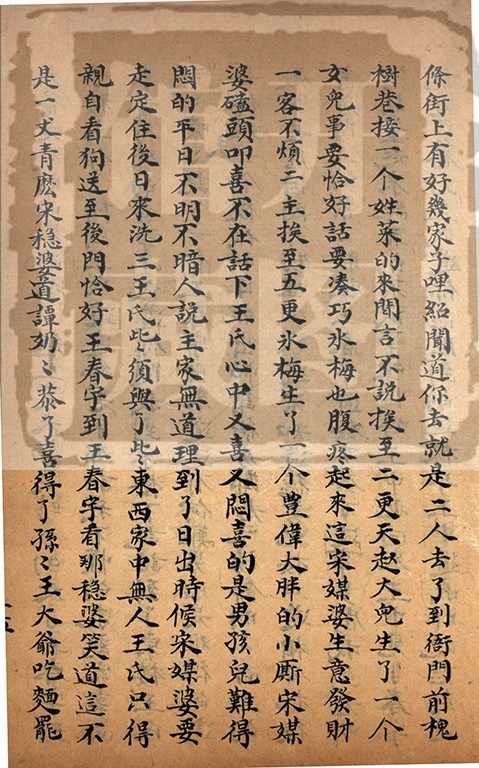 條街上有好幾家子哩紹聞道你去就是二人去了到衙門前槐
樹巷接一个姓菜的來閒言不說挨至二更天赵大兒生了一个
女兒事要恰好話要凑巧氷梅也腹疼起來這宋媒婆生意發財
一客不煩二主挨至五更氷梅生了一个豊偉大胖的小厮宋媒
婆磕頭叩喜不在話下王氏心中又喜又悶喜的是男孩兒難得
悶的平日不明不暗人説主家無道理到了日出時候宋媒婆要
走定住後日來洗三王氏些須與了些東西家中無人王氏只得
親自看狗送至後門恰好王春宇到王春宇看那稳婆笑道這不
是一丈青麽宋稳婆道譚奶〻恭了喜得了孫〻王大爺吃麵罷